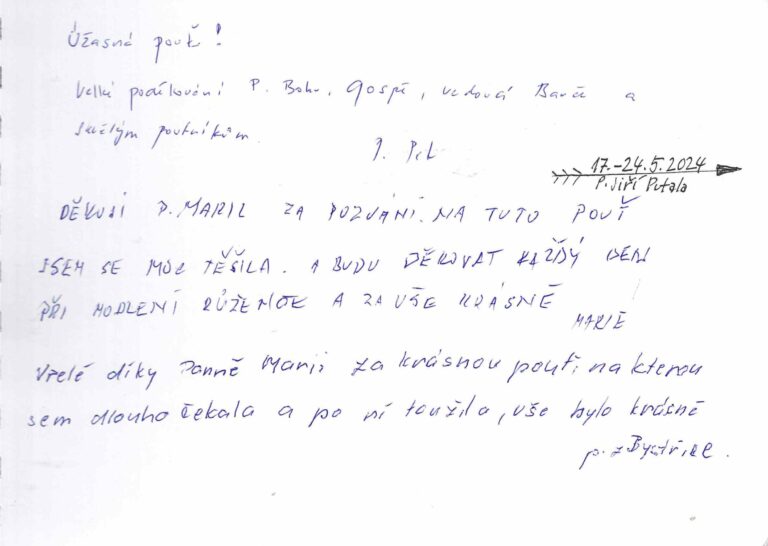 Úžasná pouť!
Velké poděkování P. Bohu, Gospě, vedoucí Barče a
skvělým poutníkům.
17.-24.5.2024
P. Jiří Putala
DĚKUJI P. MARII ZA POZVÁNÍ. NA TUTO POUŤ
JSEM SE MOC TĚŠILA. A BUDU DĚKOVAT KAŽDÝ DEN
PŘI MODLENÍ RŮŽENCE A ZA VŠE KRÁSNÉ
MARIE
Vřelé díky Panně Marii za krásnou pouť, na kterou
sem dlouho čekala a po ní toužila, vše bylo krásné
p. z Bystřice.